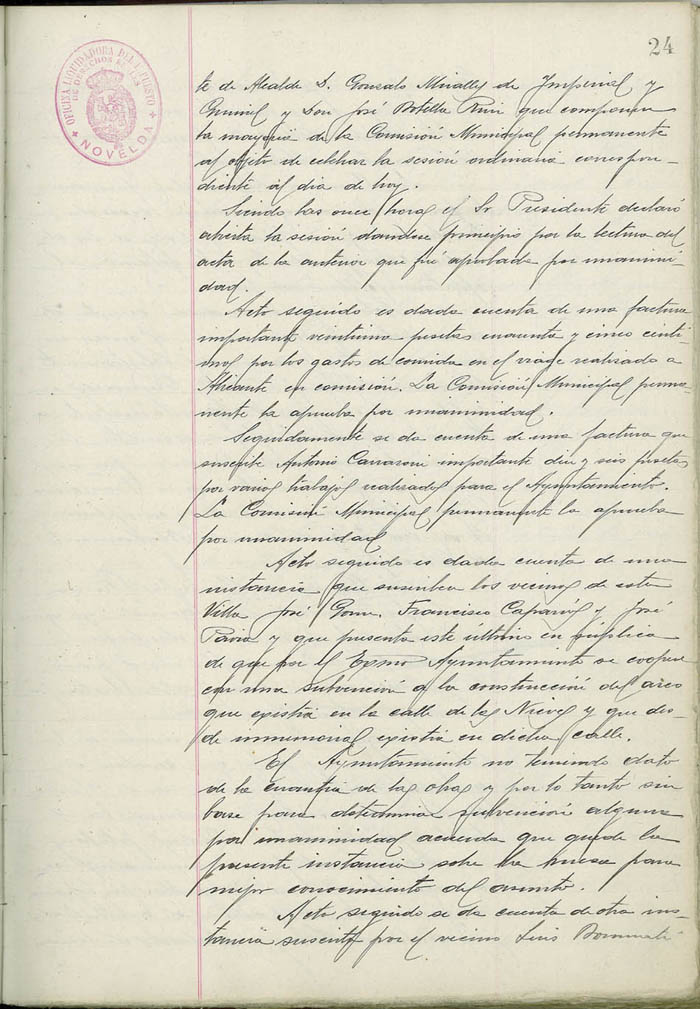 24
OFICINA LIQUIDADORA DEL IMPUESTO
DE DERECHOS REALES
NOVELDA
te de Alcalde D. Gonzalo Miralles de Imperial y
y Don José Botella que componen
la mayoria de la Comisión Municipal permanente
al objeto de celebrar la sesión ordinaria correspon-
diente al dia de hoy.
Siendo las once horas el Sr Presidente declaró
abierta la sesión dandose principio por la lectura del
acta de la anterior que fué aprobada por unanimi-
dad.
Acto seguido es dada cuenta de una factura
importante veintiuna pesetas cuarenta y cinco centi-
mos por los gastos de comida en el viaje realizado a
Alicante en comisión. La Comisión Municipal perma-
nente la aprueba por unanimidad.
Seguidamente se da cuenta de una factura que
suscribe Antonio importante diez y seis pesetas
por varios trabajos realizados para el Ayuntamiento.
La Comisión Municipal permanente la aprueba
por unanimidad
Acto seguido es dada cuenta de una
instancia que suscriben los vecinos de esta
Villa José Francisco Caparrós y José
y que presenta este último en súplica
de que por el Excmo Ayuntamiento se coopere
con una subvención a la construcción del arco
que existia en la calle de las Nieves y que des-
de inmemorial existia en dicha calle.
El Ayuntamiento no teniendo dato
de la cuantia de las obras y por lo tanto sin
base para determinar subvención alguna
por unanimidad acuerda que quede la
presente instancia sobre la mesa para
mejor conocimiento del asunto.
Acto seguido se da cuenta de otra ins-
tancia suscrita por el vecino Luis